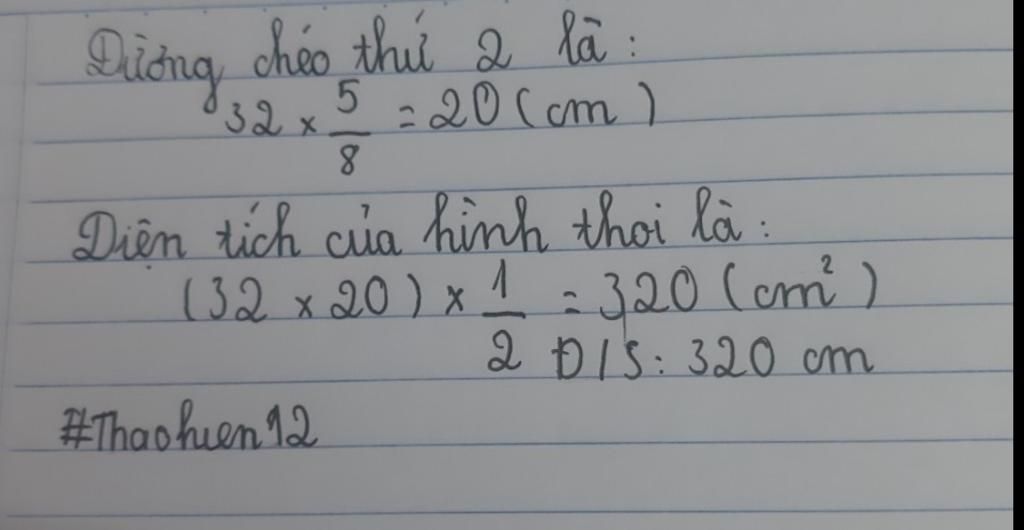 Đường chéo thứ 2 là:
32 × 5/8 = 20 (cm)
Diện tích của hình thoi là:
(32 × 20) × 1/2 = 320 (cm²)
Đ/S: 320 cm
#Thaohuen12